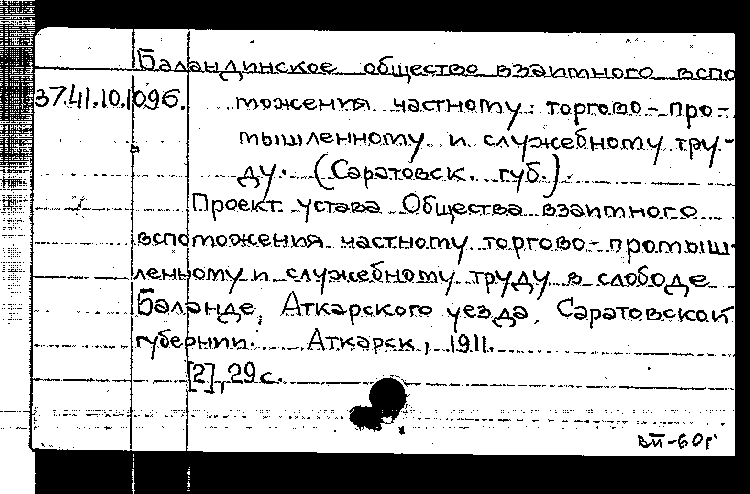 Баландинское общество взаимного вспо
37.41.10.1096.
можения частному торгово-про-
мышленному и служебному тру-
ду. (Саратовск. губ.).
Проект устава Общества взаимного
вспоможения частному торгово-промыш
ленному и служебному труду в слободе
Баланде, Аткарского уезда, Саратовской
губернии. Аткарск, 1911.
[2], 29 с.
вп-60г